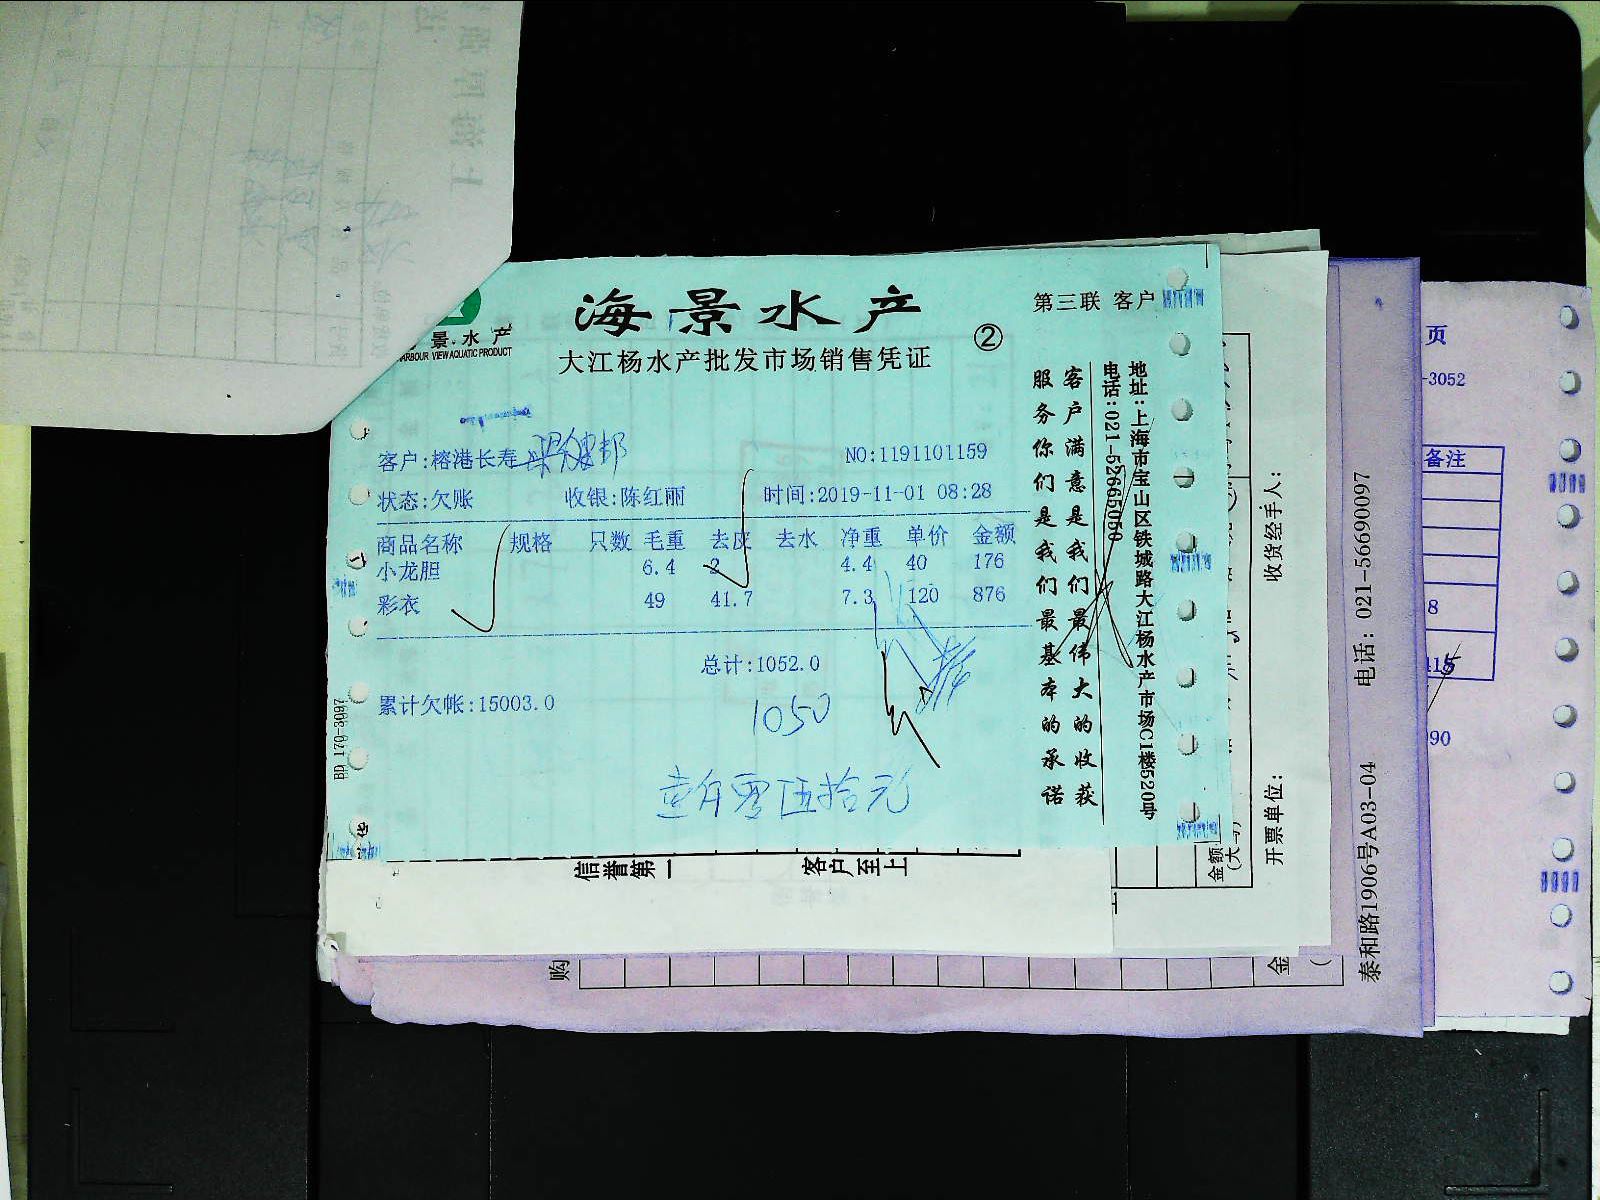 海景水产
第三联 客户
景·水产
ARBOUR VIEW AQUATIC PRODUCT
大江杨水产批发市场销售凭证
②
客户:榕港长寿
NO:1191101159
状态:欠账 收银:陈红丽 时间:2019-11-01 08:28
商品名称 规格 只数 毛重 去皮 去水 净重 单价 金额
小龙胆 6.4 2 4.4 40 176
彩衣 49 41.7 7.3 120 876
总计:1052.0
累计欠帐:15003.0
1050
壹仟零伍拾元
客户满意是我们最伟大的收获
服务你们是我们最基本的承诺
地址:上海市宝山区铁城路大江杨水产市场C1楼520号
电话:021-52665050
BD 170-3097
信誉第一 客户至上
收货经手人:
开票单位:
金额
(大写)
购
金
泰和路1906号A03-04 电话: 021-56690097
页
-3052
备注
8
90